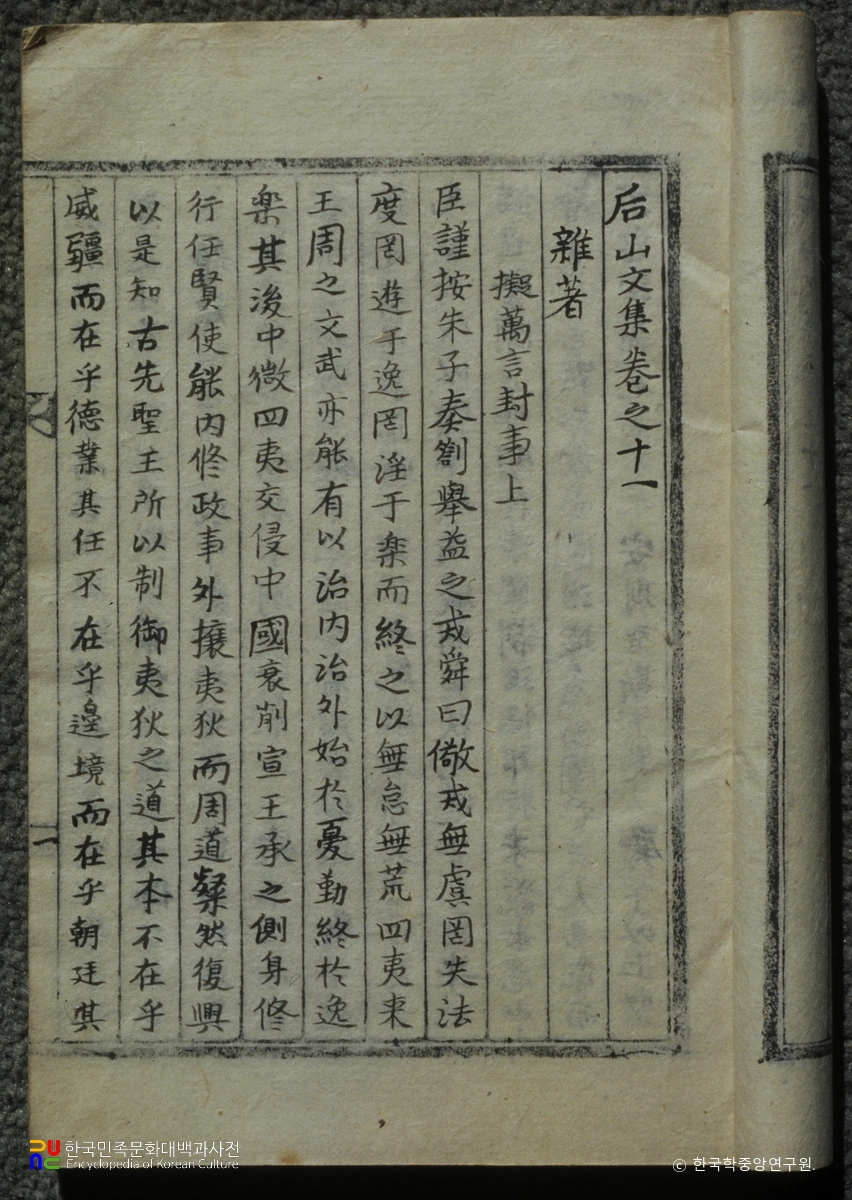 后山文集卷之十一
雜著
擬萬言封事上
臣謹按朱子奏劄舉益之戒舜曰儆戒無虞罔失法
度罔遊于逸罔淫于楽而終之以無怠無荒四夷来
王周之文武亦能有以治内治外始於憂勤終於逸
楽其後中微四夷交侵中國衰削宣王承之側身修
行任賢使能内修政事外攘夷狄而周道粲然復興
以是知古先聖王所以制御夷狄之道其本不在乎
威疆而在乎德業其任不在乎邉境而在乎朝廷其
一
한국민족문화대백과사전
Encyclopedia of Korean Culture
© 한국학중앙연구원.